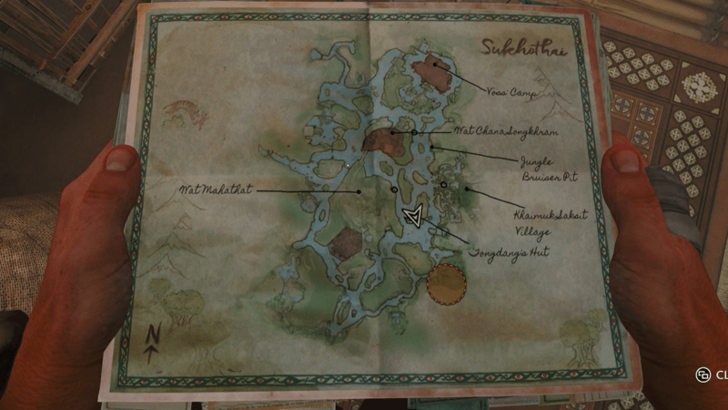 Sukhothai
Voss Camp
Wat Chana Songkhram
Jungle
Bruiser Pit
Wat Mahathat
Khaimuk Saksit
Village
Tongdang's Hut
N
CL